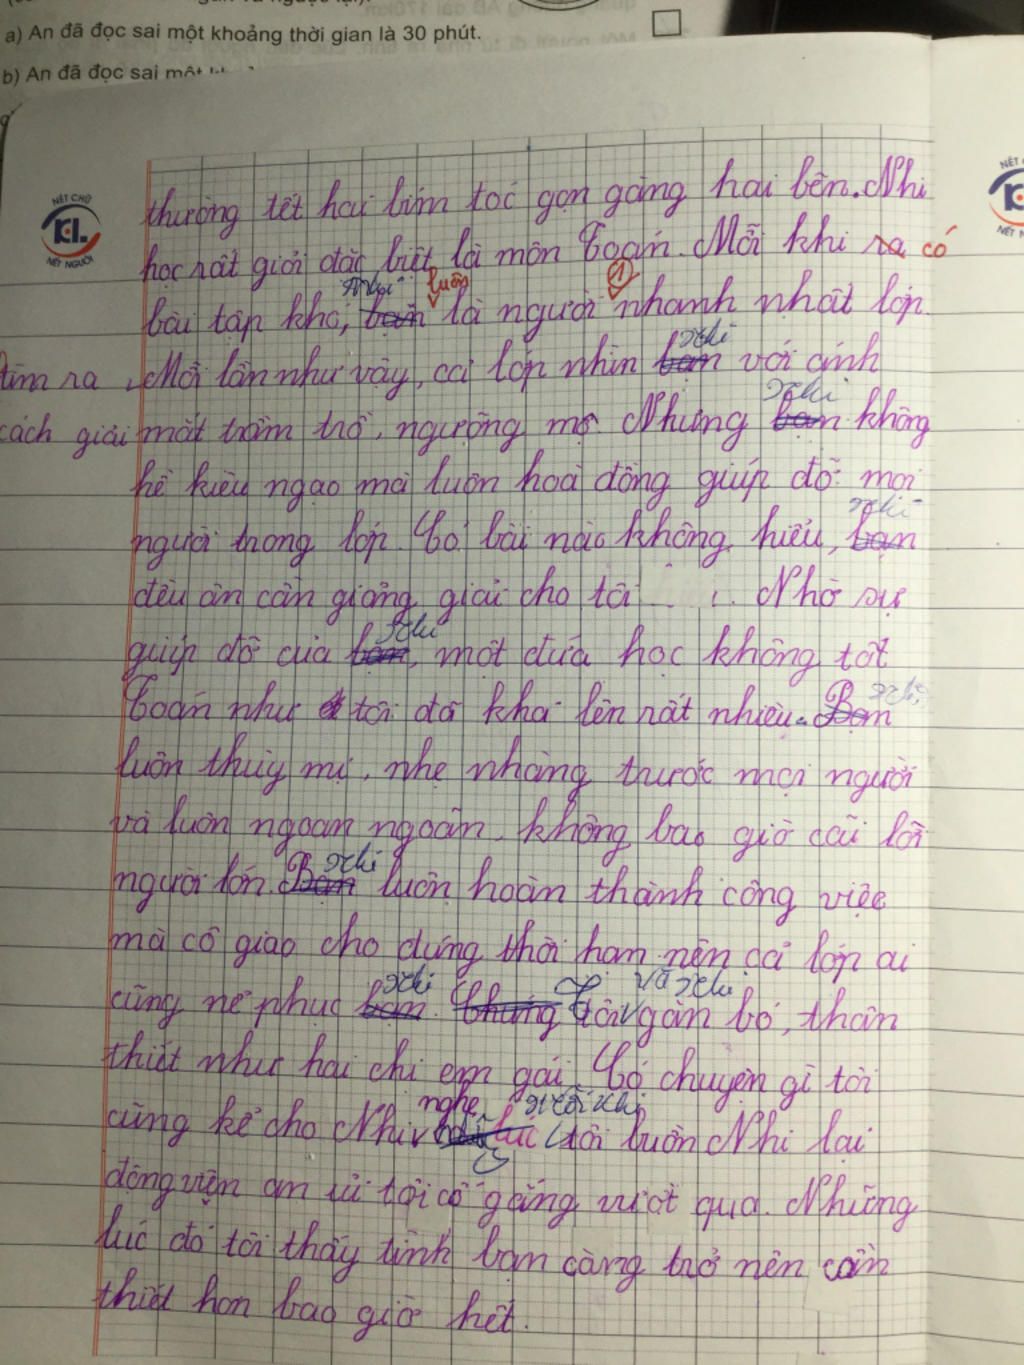 a) An đã đọc sai một khoảng thời gian là 30 phút.
b) An đã đọc sai một
NÉT CHỮ
KL
NẾT NGƯỜI
thường tết hai bím tóc gọn gàng hai bên. Nhi
học rất giỏi đặc biệt là môn Toán. Mỗi khi ra có
Nhi luôn 1
bài tập khó, bạn là người nhanh nhất lớp
Nhi
tìm ra . Mỗi lần như vậy, cả lớp nhìn bạn với ánh
Nhi
cách giải mắt trầm trồ, ngưỡng mộ. Nhưng bạn không
hề kiêu ngạo mà luôn hoà đồng giúp đỡ mọi
Nhi
người trong lớp. Có bài nào không hiểu, bạn
đều ân cần giảng giải cho tôi . Nhờ sự
Nhi
giúp đỡ của bạn, một đứa học không tốt
Nhi
Toán như tôi đã khá lên rất nhiều. Bạn
luôn thùy mị, nhẹ nhàng trước mọi người
và luôn ngoan ngoãn, không bao giờ cãi lời
Nhi
người lớn. Bạn luôn hoàn thành công việc
mà cô giao cho đúng thời hạn nên cả lớp ai
Nhi T và Nhi
cũng nể phục bạn. Chúng tôi gắn bó, thân
thiết như hai chị em gái. Có chuyện gì tôi
nghe Mỗi khi
cũng kể cho Nhi lúc tôi buồn Nhi lại
động viện an ủi tôi cố gắng vượt qua. Những
lúc đó tôi thấy tình bạn càng trở nên cần
thiết hơn bao giờ hết.